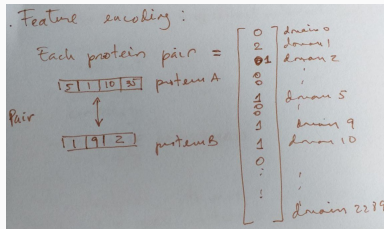 . Feature encoding :
Each protein pair =
5 | 1 | 10 | 35 protein A
Pair
1 | 9 | 2 protein B
0 domain 0
2 domain 1
1 domain 2
0
0
1 domain 5
0
0
1 domain 9
1 domain 10
0
domain 2289